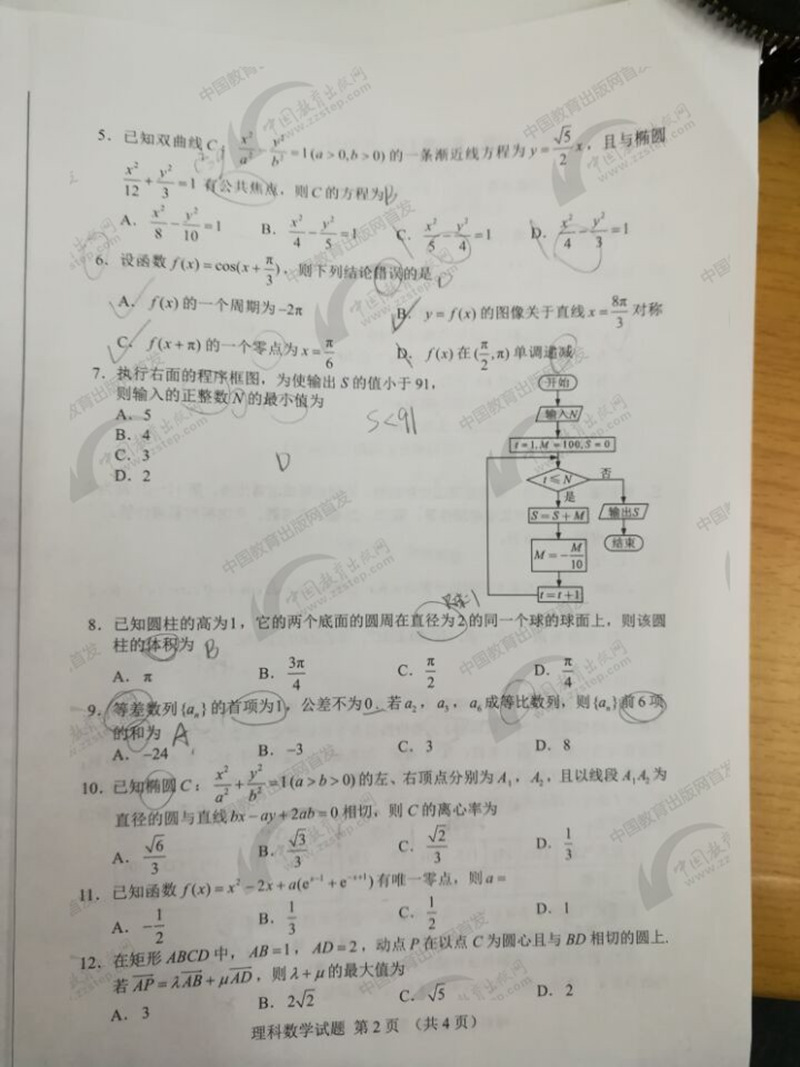 5．已知双曲线 C：x²/a² - y²/b² =1(a>0,b>0)的一条渐近线方程为 y=√5/2 x，且与椭圆
x²/12 + y²/3 =1 有公共焦点，则C的方程为
A．x²/8 - y²/10 =1 B．x²/4 - y²/5 =1 C．x²/5 - y²/4 =1 D．x²/4 - y²/3 =1
6．设函数 f(x)=cos(x+π/3)，则下列结论错误的是
A．f(x)的一个周期为-2π B．y=f(x)的图像关于直线 x=8π/3 对称
C．f(x+π)的一个零点为 x=π/6 D．f(x)在(π/2,π)单调递减
7．执行右面的程序框图，为使输出 S 的值小于 91，
则输入的正整数 N 的最小值为
A．5
B．4
C．3
D．2
S<91
D
开始
输入N
t=1,M=100,S=0
t≤N
否
是
S=S+M
输出S
M=-M/10
结束
t=t+1
8．已知圆柱的高为1，它的两个底面的圆周在直径为2的同一个球的球面上，则该圆
柱的体积为 B
A．π B．3π/4 C．π/2 D．π/4
9．等差数列{aₙ}的首项为1，公差不为0．若a₂，a₃，a₆成等比数列，则{aₙ}前6项
的和为 A
A．-24 B．-3 C．3 D．8
10．已知椭圆C：x²/a² + y²/b² =1(a>b>0)的左、右顶点分别为A₁，A₂，且以线段A₁A₂为
直径的圆与直线bx-ay+2ab=0相切，则C的离心率为
A．√6/3 B．√3/3 C．√2/3 D．1/3
11．已知函数 f(x)=x²-2x+a(eˣ⁻¹+e⁻ˣ⁺¹)有唯一零点，则a=
A．-1/2 B．1/3 C．1/2 D．1
12．在矩形ABCD中，AB=1，AD=2，动点P在以点C为圆心且与BD相切的圆上．
若 AP=λAB+μAD，则λ+μ的最大值为
A．3 B．2√2 C．√5 D．2
理科数学试题 第2页 （共4页）
中国教育出版网首发
中国教育出版网
www.zzstep.com